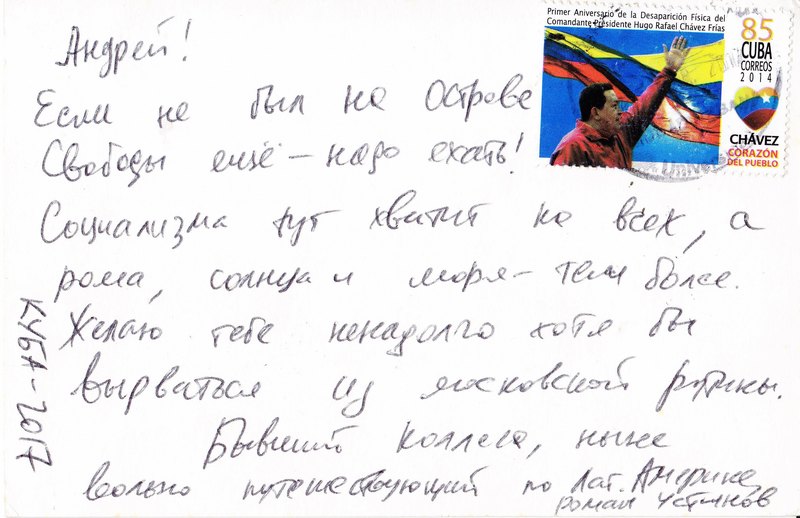 Андрей!
Если не был на Острове
Свободы ещё – надо ехать!
Социализма тут хватит на всех, а
рома, солнца и моря – тем более.
Желаю тебе ненадолго хотя бы
вырваться из московской рутины.
Бывший коллега, ныне
вольно путешествующий по Лат. Америке
Роман Устинов
КУБА – 2017
Primer Aniversario de la Desaparición Física del
Comandante Presidente Hugo Rafael Chávez Frías
85
CUBA
CORREOS
2014
CHÁVEZ
CORAZÓN
DEL PUEBLO